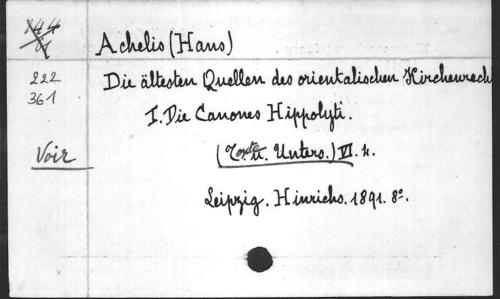 Achelis (Hans)
222
361
Die ältesten Quellen des orientalischen Kirchenrech
I. Die Canones Hippolyti.
Voir
(Texte u. Unters.) VI. 4.
Leipzig. Hinrichs. 1891. 8º.